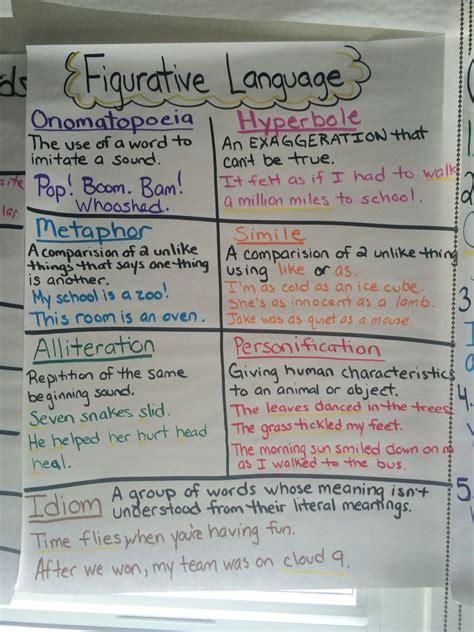 Figurative Language
Onomatopoeia
The use of a word to
imitate a sound.
Pop! Boom. Bam!
Whooshed.
Hyperbole
An EXAGGERATION that
can't be true.
It felt as if I had to walk
a million miles to school.
Metaphor
A comparision of 2 unlike
things that says one thing
is another.
My school is a zoo!
This room is an oven.
Simile
A comparision of 2 unlike thing
using like or as.
I'm as cold as an ice cube.
She's as innocent as a lamb.
Jake was as quiet as a mouse.
Alliteration
Repitition of the same
beginning sound.
Seven snakes slid.
He helped her hurt head
heal.
Personification
Giving human characteristics
to an animal or object.
The leaves danced in the trees
The grass tickled my feet.
The morning sun smiled down on m
as I walked to the bus.
Idiom
A group of words whose meaning isn't
understood from their literal meanings.
Time flies when you're having fun.
After we won, my team was on cloud 9.
ds
lar
1.
2
3.
4
5.